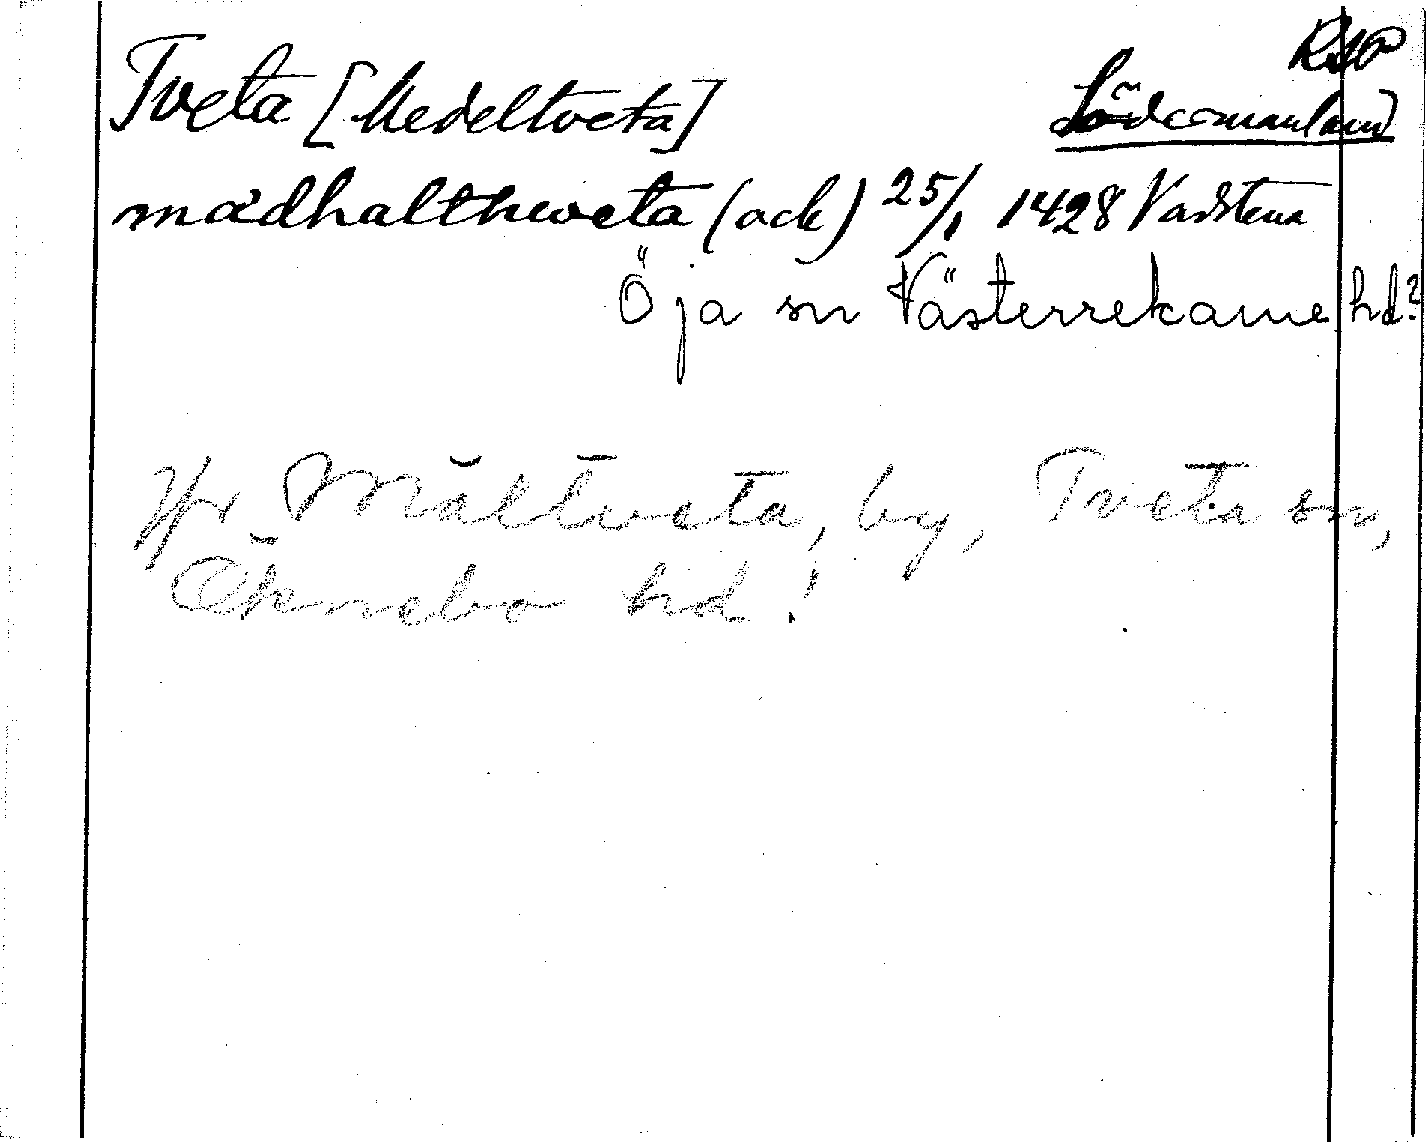 RAP
Tveta [Medeltveta] Södermanland
mædhalthweta (ack) 25/1 1428 Vadstena
Öja sn Västerrekarne hd?
Jfr Måltveta, by, Tveta sn,
Öknebo hd!